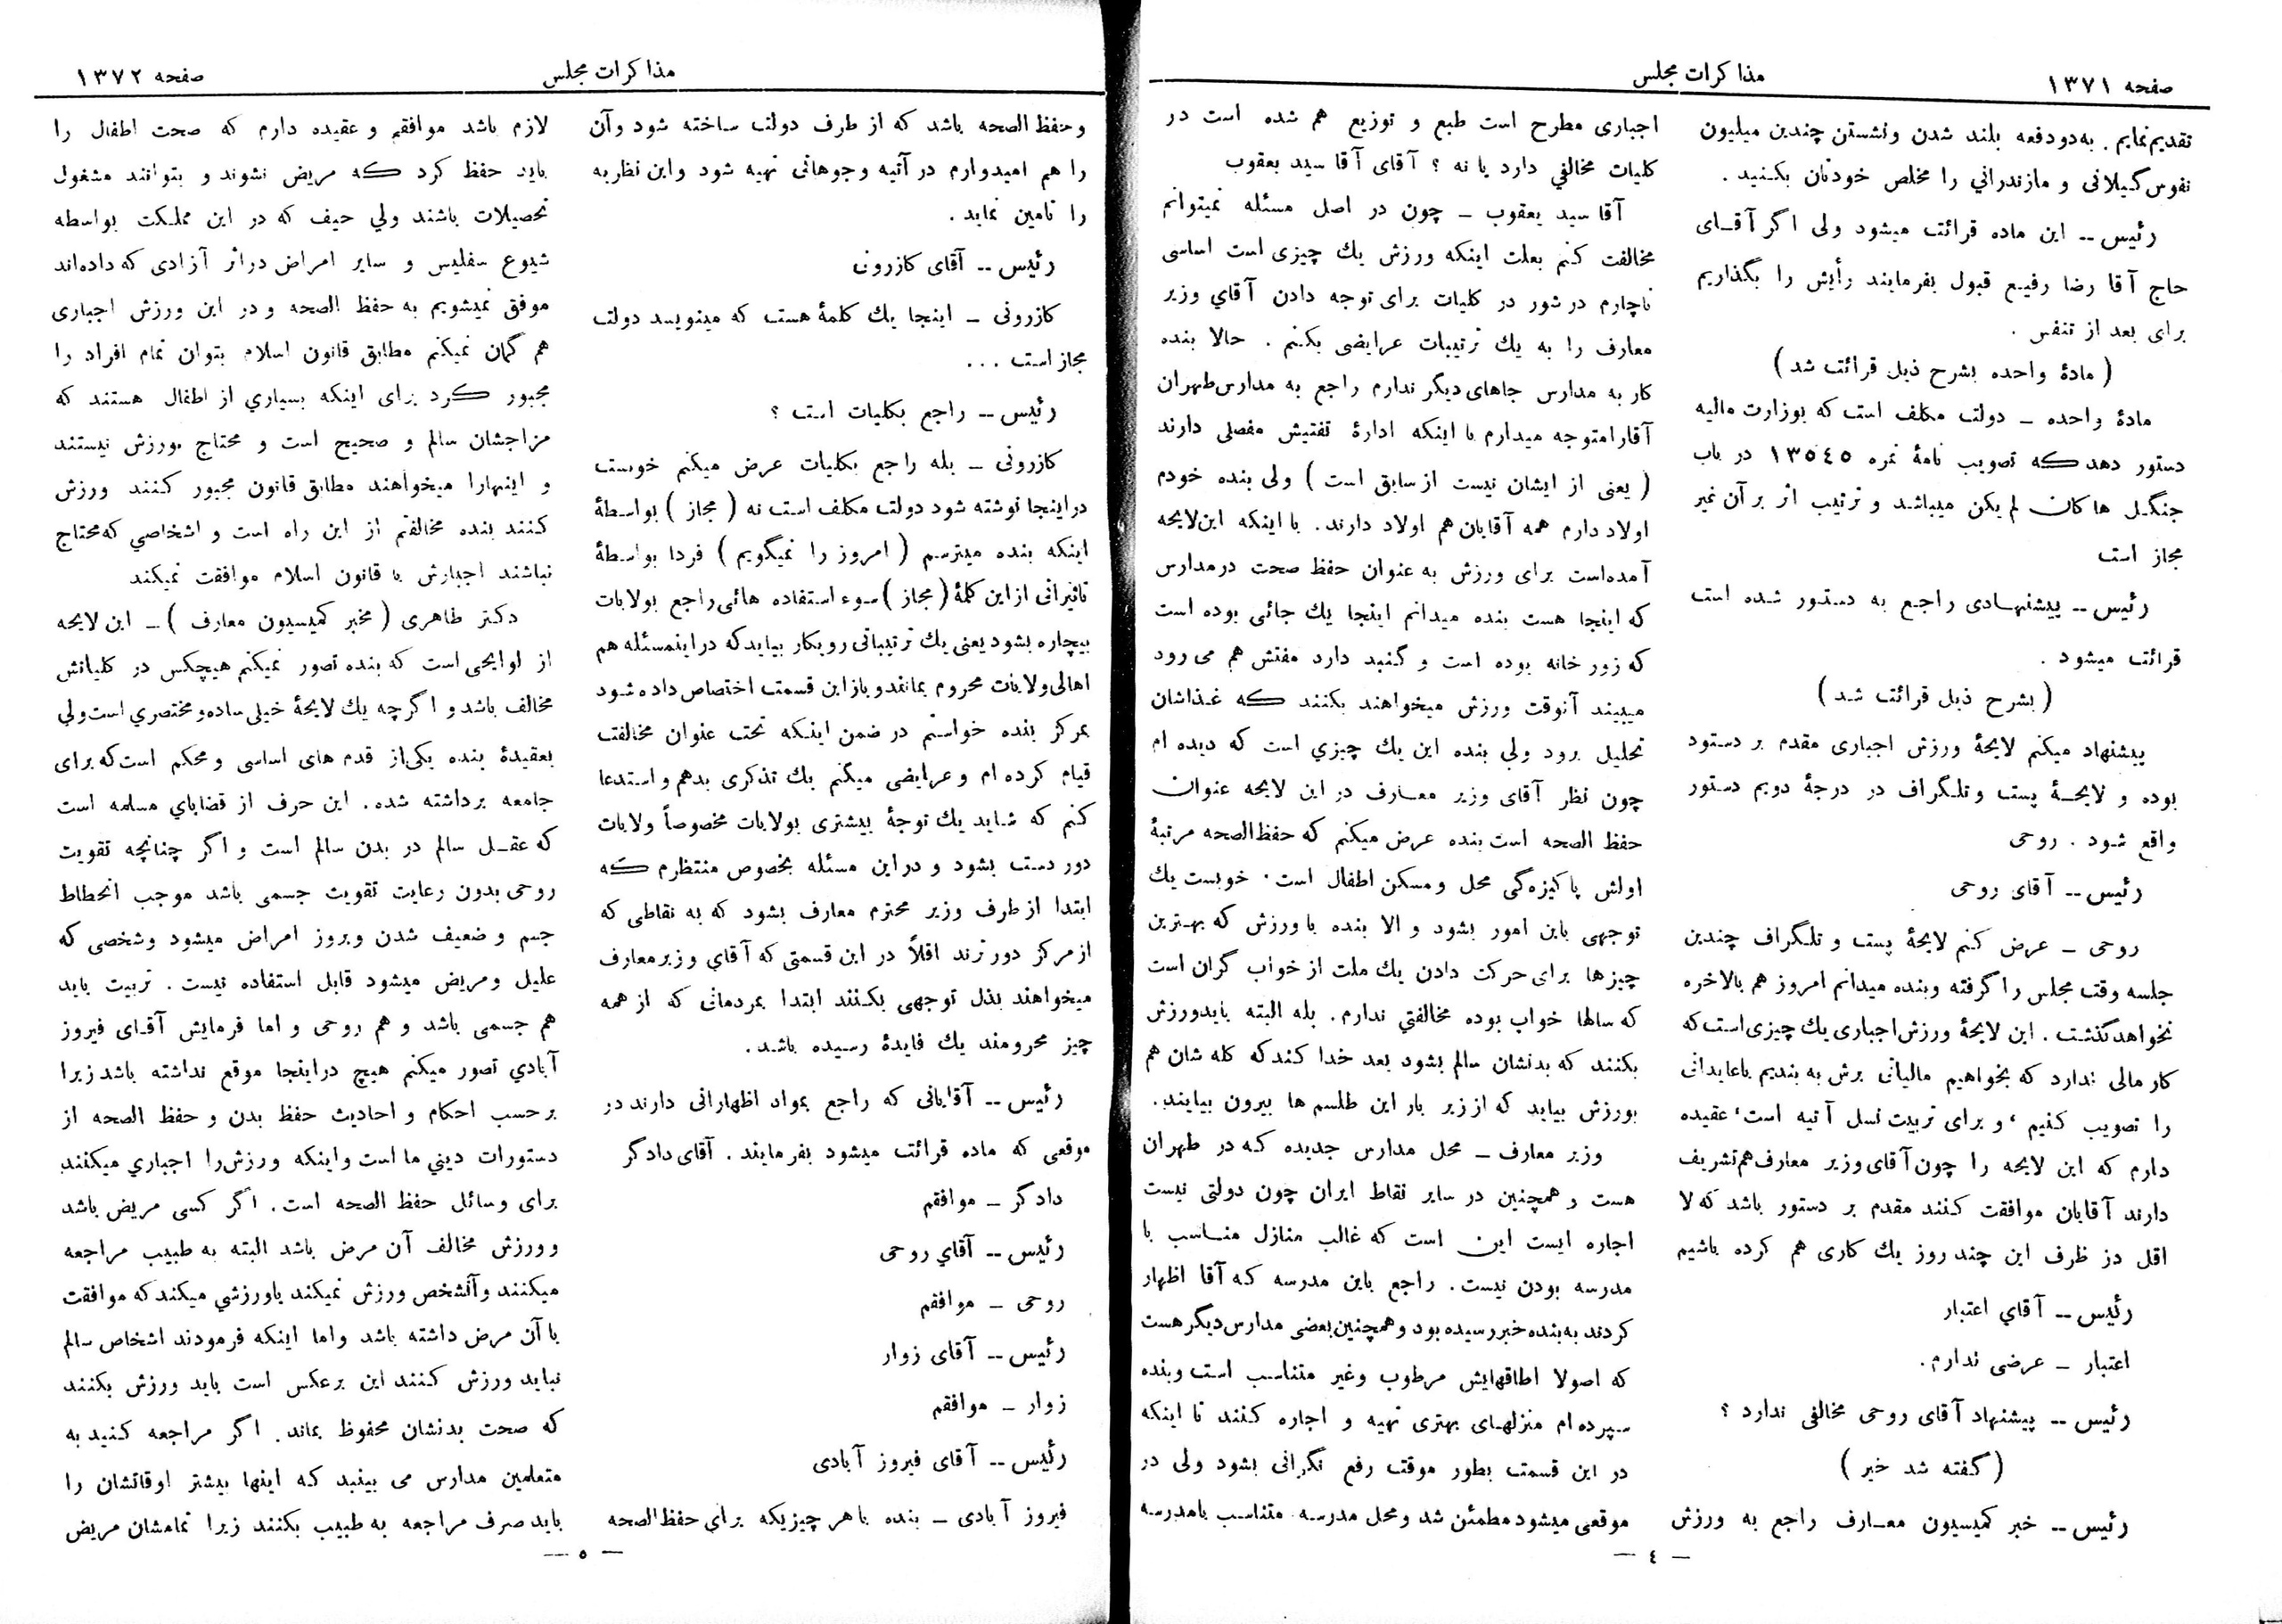 صفحه ۱۳۷۱
مذاکرات مجلس
تقدیم نمایم . به دو دفعه بلند شدن و نشستن چندین میلیون
نفوس گیلانی و مازندرانی را مخلص خودتان بکنید .
رئیس -- این ماده قرائت میشود ولی اگر آقای
حاج آقا رضا رفیع قبول بفرمایند رأیش را بگذاریم
برای بعد از تنفس .
( مادهٔ واحده بشرح ذیل قرائت شد )
مادهٔ واحده – دولت مکلف است که بوزارت مالیه
دستور دهد که تصویب نامهٔ نمره ۱۳۵٤۵ در باب
جنگل ها کان لم یکن میباشد و ترتیب اثر بر آن غیر
مجاز است
رئیس -- پیشنهادی راجع به دستور شده است
قرائت میشود .
( بشرح ذیل قرائت شد )
پیشنهاد میکنم لایحهٔ ورزش اجباری مقدم بر دستود
بوده و لایحهٔ پست و تلگراف در درجهٔ دویم دستور
واقع شود . روحی
رئیس -- آقای روحی
روحی – عرض کنم لایحهٔ پست و تلگراف چندین
جلسه وقت مجلس را گرفته وبنده میدانم امروز هم بالاخره
نخواهد گذشت . این لایحهٔ ورزش اجباری یك چیزی است که
کار مالی ندارد که بخواهیم مالیاتی برش به بندیم یا عایداتی
را تصویب کنیم ، و برای تربیت نسل آتیه است ، عقیده
دارم که این لایحه را چون آقای وزیر معارف هم تشریف
دارند آقایان موافقت کنند مقدم بر دستور باشد که لا
اقل دز ظرف این چند روز یك کاری هم کرده باشیم
رئیس -- آقاي اعتبار
اعتبار – عرضی ندارم .
رئیس -- پیشنهاد آقای روحی مخالفی ندارد ؟
( گفته شد خیر )
رئیس -- خبر کمیسیون معارف راجع به ورزش
اجباری مطرح است طبع و توزیع هم شده است در
کلیات مخالفي دارد یا نه ؟ آقای آقا سید یعقوب
آقا سید یعقوب – چون در اصل مسئله نمیتوانم
مخالفت کنم بعلت اینکه ورزش یك چیزی است اساسی
ناچارم در شور در کلیات برای توجه دادن آقاي وزیر
معارف را به یك ترتیبات عرایضی بکنم . حالا بنده
کار به مدارس جاهای دیگر ندارم راجع به مدارس طهران
آقا را متوجه میدارم با اینکه ادارهٔ تفتیش مفصلی دارند
( یعنی از ایشان نیست از سابق است ) ولی بنده خودم
اولاد دارم همه آقایان هم اولاد دارند . با اینکه این لایحه
آمده است برای ورزش به عنوان حفظ صحت در مدارس
که اینجا هست بنده میدانم اینجا یك جائی بوده است
که زور خانه بوده است و گنبد دارد مفتش هم می رود
میبیند آنوقت ورزش میخواهند بکنند که غذاشان
تحلیل برود ولي بنده این یك چیزي است که دیده ام
چون نظر آقای وزیر معارف در این لایحه عنوان
حفظ الصحه است بنده عرض میکنم که حفظ الصحه مرتبهٔ
اولش پاکیزه‌گی محل و مسکن اطفال است . خوبست یك
توجهی باین امور بشود و الا بنده با ورزش که بهترین
چیزها برای حرکت دادن یك ملت از خواب گران است
که سالها خواب بوده مخالفتي ندارم . بله البته باید ورزش
بکنند که بدنشان سالم بشود بعد خدا کند که کله شان هم
بورزش بیاید که از زیر بار این طلسم ها بیرون بیایند .
وزیر معارف – محل مدارس جدیده که در طهران
هست و همچنین در سایر نقاط ایران چون دولتی نیست
اجاره ایست این است که غالب منازل مناسب با
مدرسه بودن نیست . راجع باین مدرسه که آقا اظهار
کردند به بنده خبر رسیده بود و همچنین بعضی مدارس دیگر هست
که اصولا اطاقهایش مرطوب وغیر متناسب است وبنده
سپرده ام منزلهای بهتری تهیه و اجاره کنند تا اینکه
در این قسمت بطور موقت رفع نگرانی بشود ولی در
موقعی میشود مطمئن شد و محل مدرسه متناسب با مدرسه
— ٤ —
مذاکرات مجلس
صفحه ۱۳۷۲
و حفظ الصحه باشد که از طرف دولت ساخته شود وآن
را هم امیدوارم در آتیه وجوهاتی تهیه شود و این نظریه
را تامین نماید .
رئیس -- آقای کازرونی
کازرونی – اینجا یك کلمهٔ هست که مینویسد دولت
مجاز است ...
رئیس -- راجع بکلیات است ؟
کازرونی – بله راجع بکلیات عرض میکنم خوبست
در اینجا نوشته شود دولت مکلف است نه ( مجاز ) بواسطهٔ
اینکه بنده میترسم ( امروز را نمیگویم ) فردا بواسطهٔ
تاثیراتی از این کلمهٔ ( مجاز ) سوء استفاده هائی راجع بولایات
بیچاره بشود یعنی یك ترتیباتی رویکار بیاید که در اینمسئله هم
اهالی ولایات محروم بمانند و باز این قسمت اختصاص داده شود
بمرکز بنده خواستم در ضمن اینکه تحت عنوان مخالفت
قیام کرده ام و عرایضی میکنم یك تذکری بدهم و استدعا
کنم که شاید یك توجهٔ بیشتری بولایات مخصوصاً ولایات
دور دست بشود و در این مسئله بخصوص منتظرم که
ابتدا از طرف وزیر محترم معارف بشود که به نقاطی که
از مرکز دور ترند اقلاً در این قسمتی که آقاي وزیر معارف
میخواهند بذل توجهی بکنند ابتدا بمردمانی که از همه
چیز محرومند یك فایدهٔ رسیده باشد .
رئیس -- آقایانی که راجع بمواد اظهاراتی دارند در
موقعی که ماده قرائت میشود بفرمایند . آقای دادگر
دادگر – موافقم
رئیس -- آقاي روحی
روحی – موافقم
رئیس -- آقای زوار
زوار – موافقم
رئیس -- آقای فیروز آبادی
فیروز آبادی – بنده با هر چیزیکه برای حفظ الصحه
لازم باشد موافقم و عقیده دارم که صحت اطفال را
باید حفظ کرد که مریض نشوند و بتوانند مشغول
تحصیلات باشند ولي حیف که در این مملکت بواسطه
شیوع سفلیس و سایر امراض در اثر آزادی که داده‌اند
موفق نمیشویم به حفظ الصحه و در این ورزش اجباری
هم گمان نمیکنم مطابق قانون اسلام بتوان تمام افراد را
مجبور کرد برای اینکه بسیاري از اطفال هستند که
مزاجشان سالم و صحیح است و محتاج بورزش نیستند
و اینهارا میخواهند مطابق قانون مجبور کنند ورزش
کنند بنده مخالفتم از این راه است و اشخاصي که محتاج
نباشند اجبارش با قانون اسلام موافقت نمیکند
دکتر طاهری ( مخبر کمیسیون معارف ) – این لایحه
از لوایحی است که بنده تصور نمیکنم هیچکس در کلیاتش
مخالف باشد و اگر چه یك لایحهٔ خیلی ساده و مختصري است ولي
بعقیدهٔ بنده یکی از قدم های اساسی و محکم است که برای
جامعه برداشته شده . این حرف از قضایاي مسلمه است
که عقل سالم در بدن سالم است و اگر چنانچه تقویت
روحی بدون رعایت تقویت جسمی باشد موجب انحطاط
جسم و ضعیف شدن و بروز امراض میشود وشخصی که
علیل و مریض میشود قابل استفاده نیست . تربیت باید
هم جسمی باشد و هم روحی و اما فرمایش آقای فیروز
آبادي تصور میکنم هیچ در اینجا موقع نداشته باشد زیرا
بر حسب احکام و احادیث حفظ بدن و حفظ الصحه از
دستورات دیني ما است و اینکه ورزش را اجباري میکنند
برای وسائل حفظ الصحه است . اگر کسی مریض باشد
و ورزش مخالف آن مرض باشد البته به طبیب مراجعه
میکنند و آنشخص ورزش نمیکند یا ورزشي میکند که موافقت
با آن مرض داشته باشد واما اینکه فرمودند اشخاص سالم
نباید ورزش کنند این بر عکس است باید ورزش بکنند
که صحت بدنشان محفوظ بماند . اگر مراجعه کنید به
متعلمین مدارس می بینید که اینها بیشتر اوقاتشان را
باید صرف مراجعه به طبیب بکنند زیرا تمامشان مریض
— ۵ —